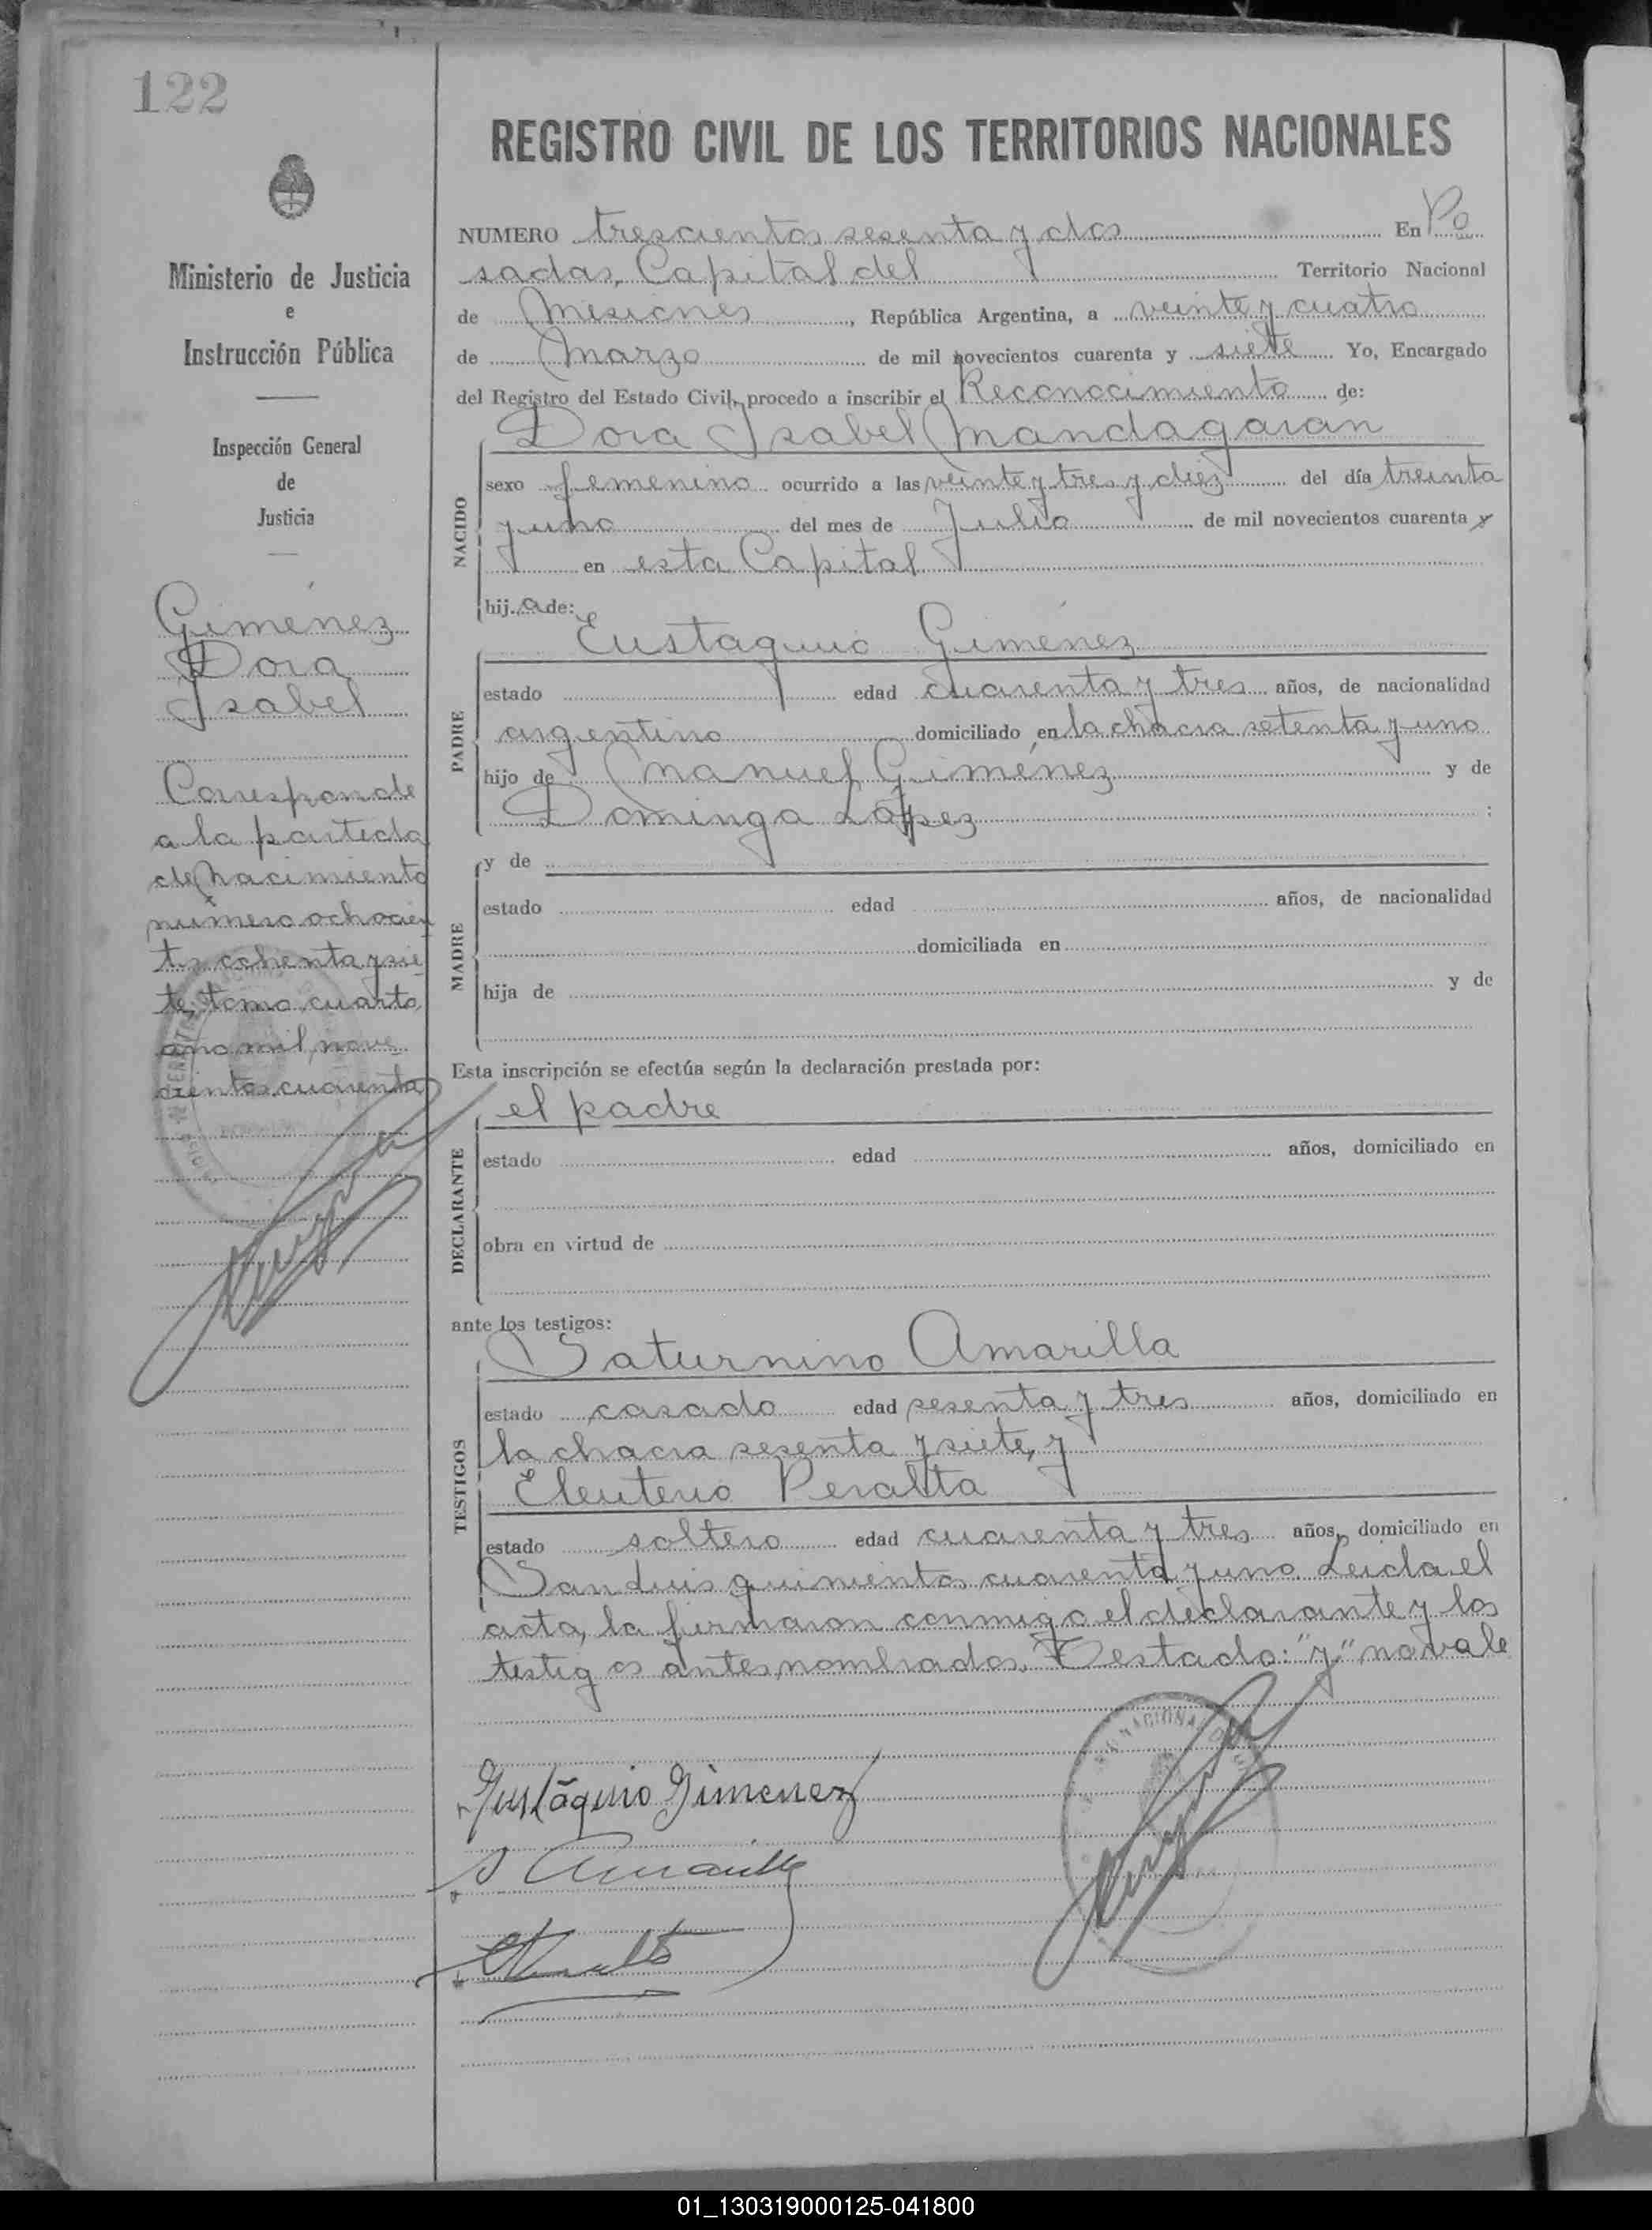 122
REGISTRO CIVIL DE LOS TERRITORIOS NACIONALES
Ministerio de Justicia
e
Instrucción Pública
Inspección General
de
Justicia
Giménez
Dora
Isabel
Corresponde
a la partida
de nacimiento
número ochocien
tos ochenta y sie
te, tomo cuarto,
año mil nove
cientos cuarenta
NUMERO trescientos sesenta y dos En Po
sadas, Capital del Territorio Nacional
de Misiones, República Argentina, a veinte y cuatro
de Marzo de mil novecientos cuarenta y siete Yo, Encargado
del Registro del Estado Civil, procedo a inscribir el Reconocimiento de:
Dora Isabel Mandagarán
NACIDO
sexo femenino ocurrido a las veinte y tres y diez del día treinta
y uno del mes de Julio de mil novecientos cuarenta y
en esta Capital
hij.a de:
Eustaquio Giménez
PADRE
estado edad cuarenta y tres años, de nacionalidad
argentino domiciliado en la chacra setenta y uno
hijo de Manuel Giménez y de
Dominga López ;
MADRE
y de
estado edad años, de nacionalidad
domiciliada en
hija de y de
Esta inscripción se efectúa según la declaración prestada por:
el padre
DECLARANTE
estado edad años, domiciliado en
obra en virtud de
ante los testigos:
Saturnino Amarilla
TESTIGOS
estado casado edad sesenta y tres años, domiciliado en
la chacra sesenta y siete, y
Eleuterio Peralta
estado soltero edad cuarenta y tres años, domiciliado en
San Luis quinientos cuarenta y uno. Leída el
acta, la firmaron conmigo el declarante y los
testigos antes nombrados. Testado: "y" no vale
Eustáquio Gimenez
S Amarilla
01_130319000125-041800